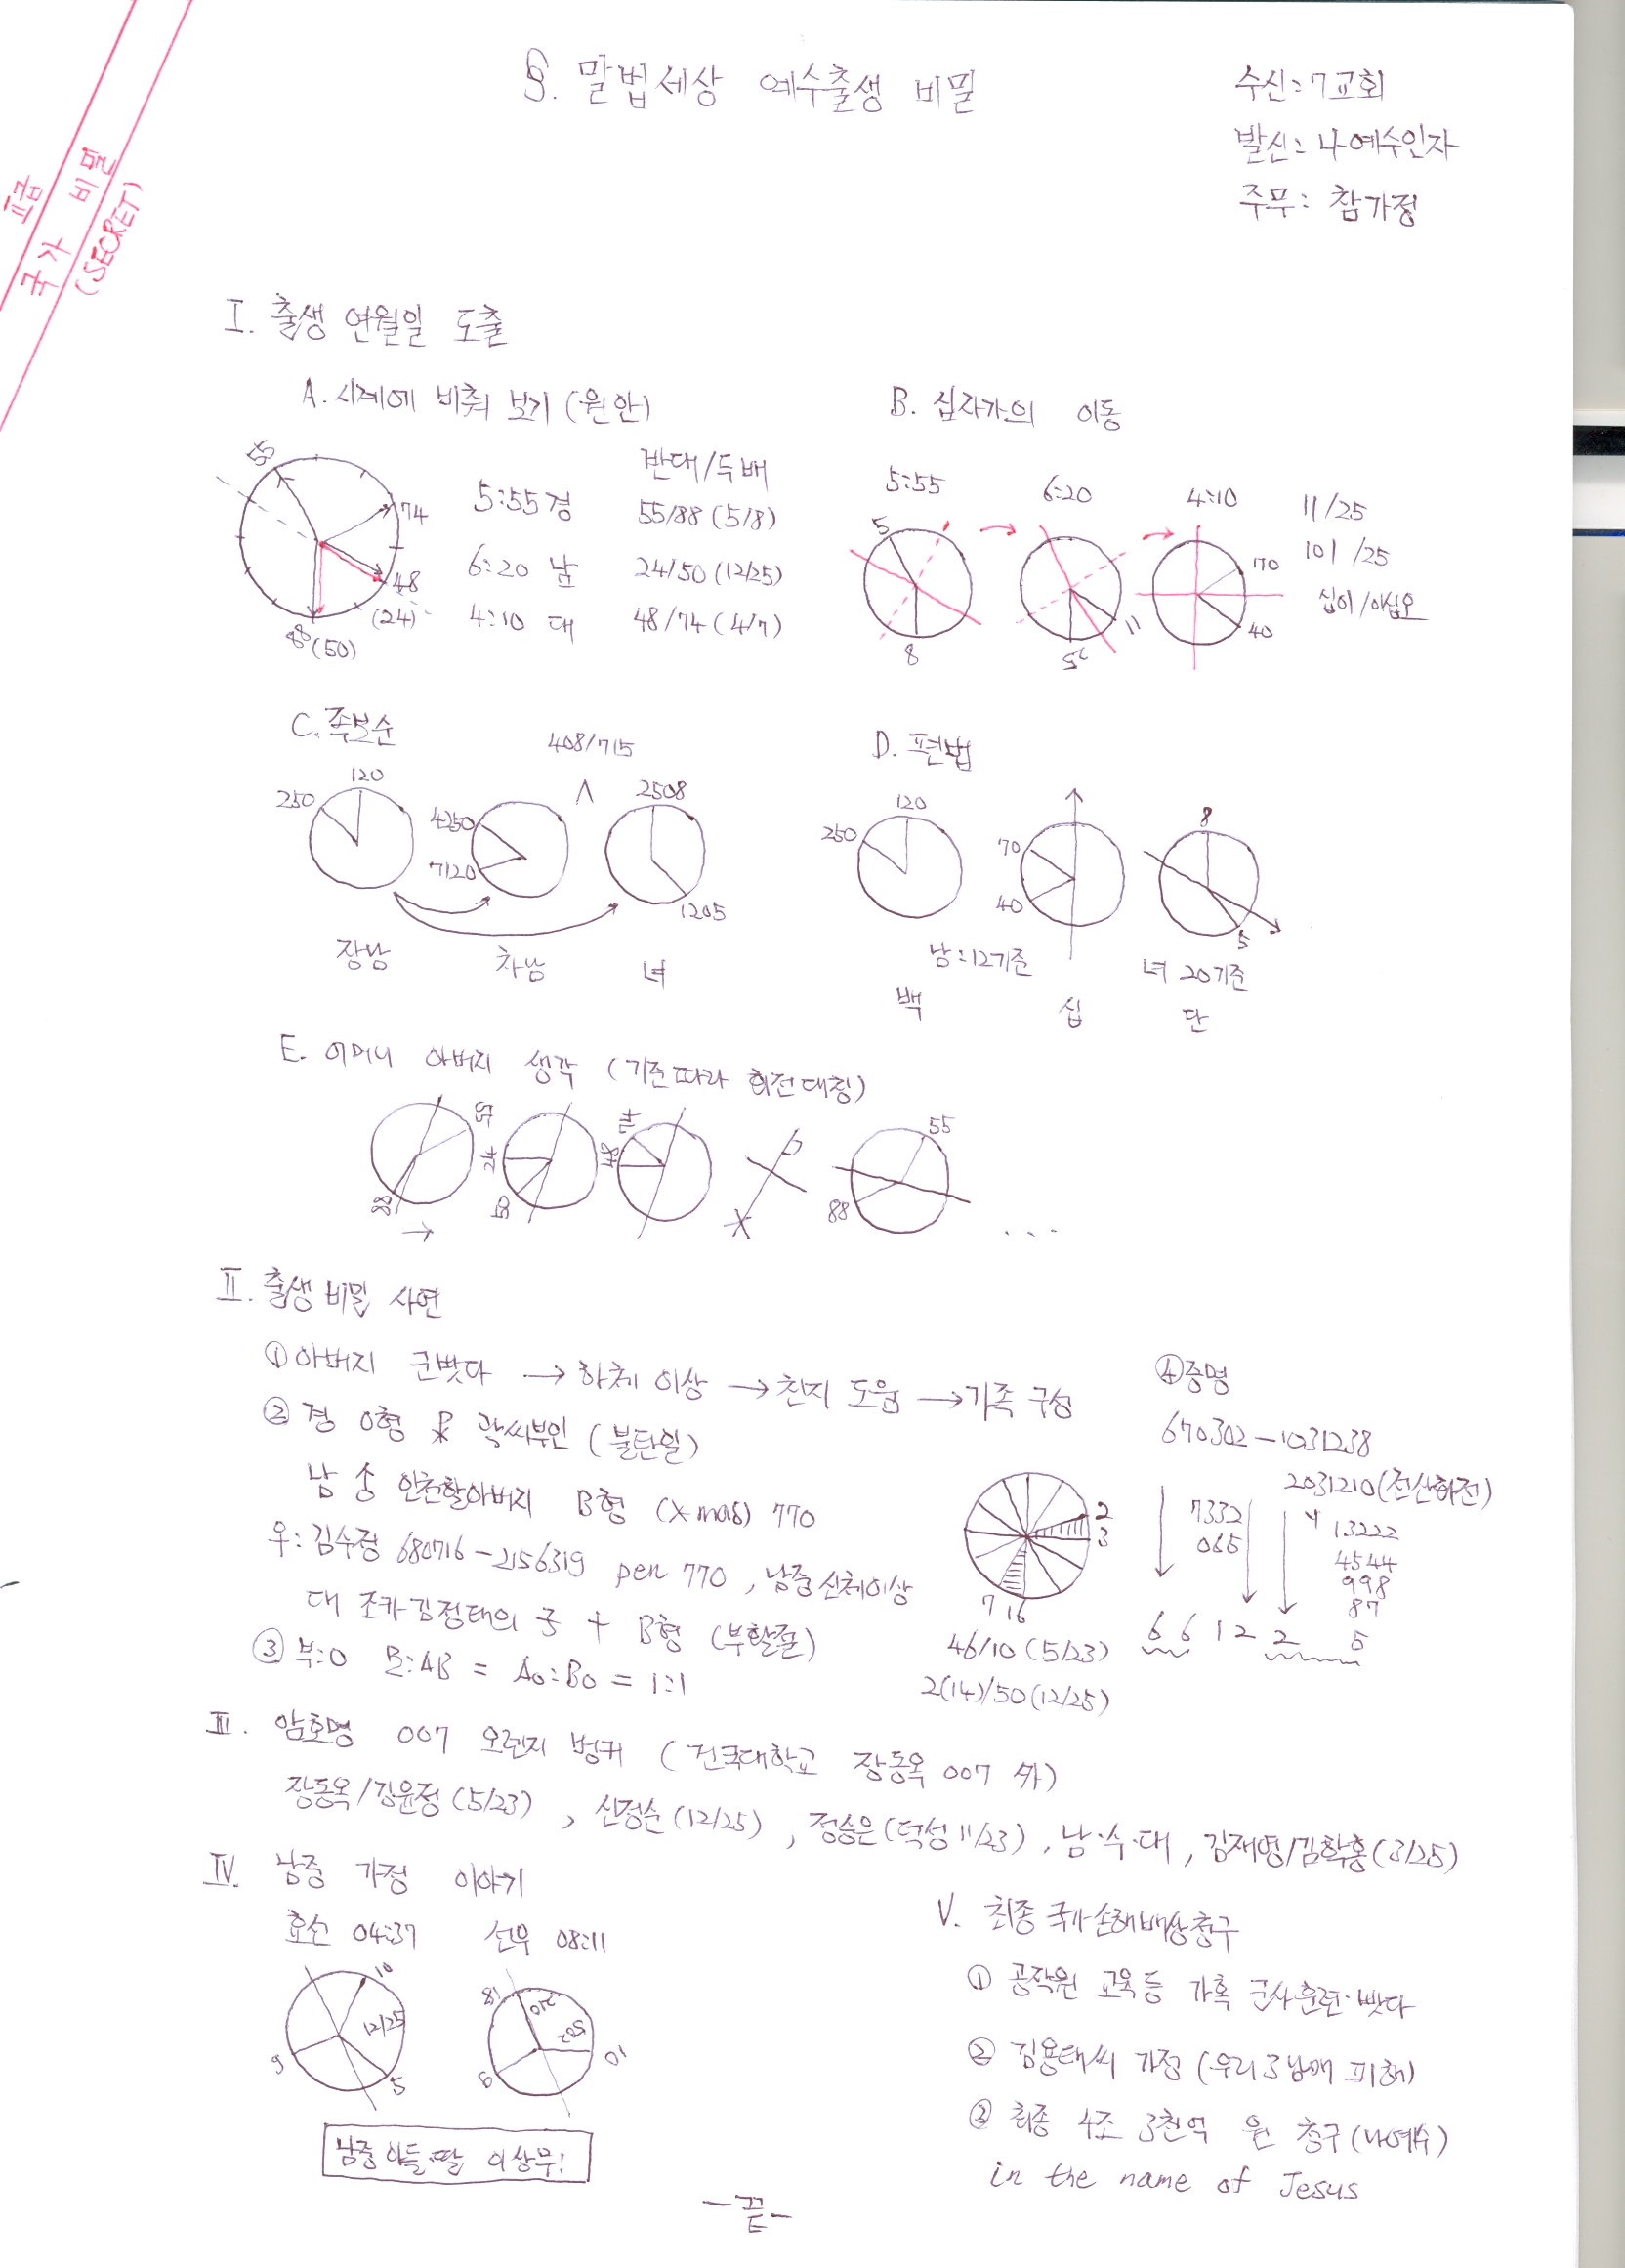 Ⅱ급
국가 비밀
(SECRET)
§. 말법세상 예수출생 비밀
수신: 7교회
발신: 나예수인자
주무: 참가정
Ⅰ. 출생 연월일 도출
A. 시계에 비춰 보기 (원안)
B. 십자가의 이동
반대/두배
5:55 경 55/88 (5/8)
6:20 남 24/50 (12/25)
4:10 대 48/74 (4/7)
55
74
48
(24)
88 (50)
5:55
6:20
4:10
11/25
101/25
십이/이십오
5
8
11
52
170
40
C. 족보순
408/715
∧
D. 편법
250
120
4250
7120
2508
1205
장남
차남
녀
250
120
70
40
8
5
남:12기준
녀 20기준
백
십
단
E. 어머니 아버지 생각 (기준따라 회전대칭)
55
88
24
50
74
48
55
88
→
...
Ⅱ. 출생비밀 사연
① 아버지 군밧다 → 하체이상 → 천지 도움 → 가족 구성
② 경 O형 곽씨부인 (불탄일)
남 송 인천할아버지 B형 (X mas) 770
우: 김수정 680716-2156319 pen 770, 남중신체이상
대 조카김정태의 子 + B형 (부활절)
③ 부:O 모:AB = Ao:Bo = 1:1
④ 증명
670302-1031238
2031210 (전산하전)
7332
065
13222
4544
998
87
6 6 1 2 2 5
2
3
7 16
46/10 (5/23)
2(14)/50 (12/25)
Ⅲ. 암호명 007 오렌지 벙커 (건국대학교 장동옥 007 外)
장동옥/김윤정 (5/23), 신정순 (12/25), 정승은 (덕성 11/23), 남·수·대, 김재영/김학홍 (3/25)
Ⅳ. 남중 가정 이야기
효선 04:37
선우 08:11
10
12/25
6
5
18
210
502
9
10
남중 아들·딸 이상무!
Ⅴ. 최종 국가손해배상청구
① 공작원 교육등 가혹 군사훈련·빳다
② 김용태씨 가정 (우리3남매 피해)
③ 최종 4조 3천억 원 청구 (나예수)
in the name of Jesus
-끝-